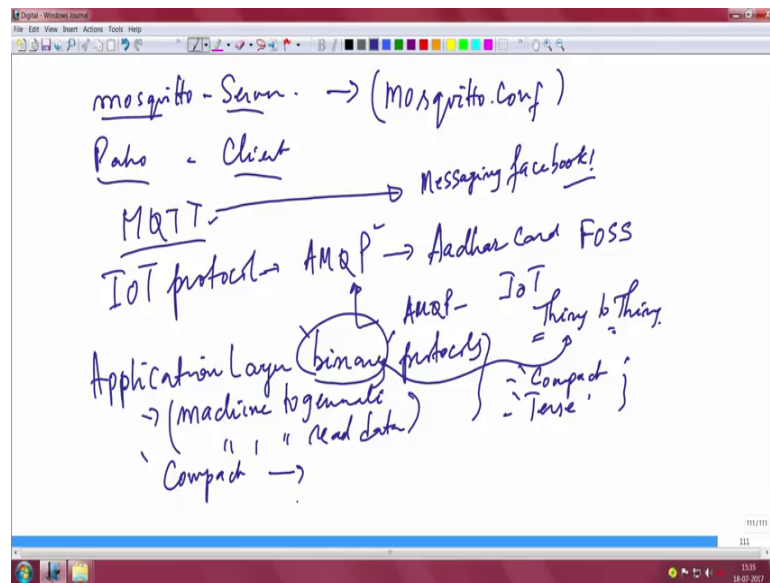 Digital - Windows Journal
File Edit View Insert Actions Tools Help
mosquitto - Server. → (Mosquitto.Conf)
Paho - Client
MQTT → Messaging facebook!
IoT protocol → AMQP → Aadhar Card FOSS
AMQP - IoT
Thing to Thing.
Application Layer (binary protocols)
→ (machine to generate
" , " read data)
- 'Compact'
- 'Terse'
'Compact →
111/111
111
15:35
18-07-2017